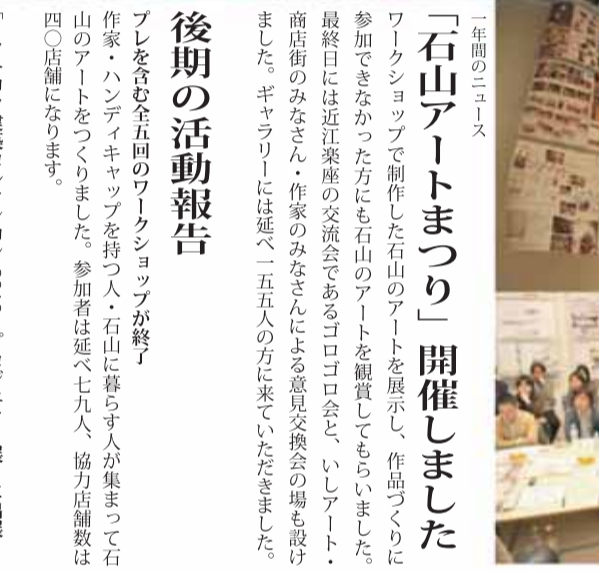 一年間のニュース
「石山アートまつり」開催しました
ワークショップで制作した石山のアートを展示し、作品づくりに
参加できなかった方にも石山のアートを観賞してもらいました。
最終日には近江楽座の交流会であるゴロゴロ会と、いしアート・
商店街のみなさん・作家のみなさんによる意見交換会の場も設け
ました。ギャラリーには延べ一五五人の方に来ていただきました。
後期の活動報告
プレを含む全五回のワークショップが終了
作家・ハンディキャップを持つ人・石山に暮らす人が集まって石
山のアートをつくりました。参加者は延べ七九人、協力店舗数は
四〇店舗になります。